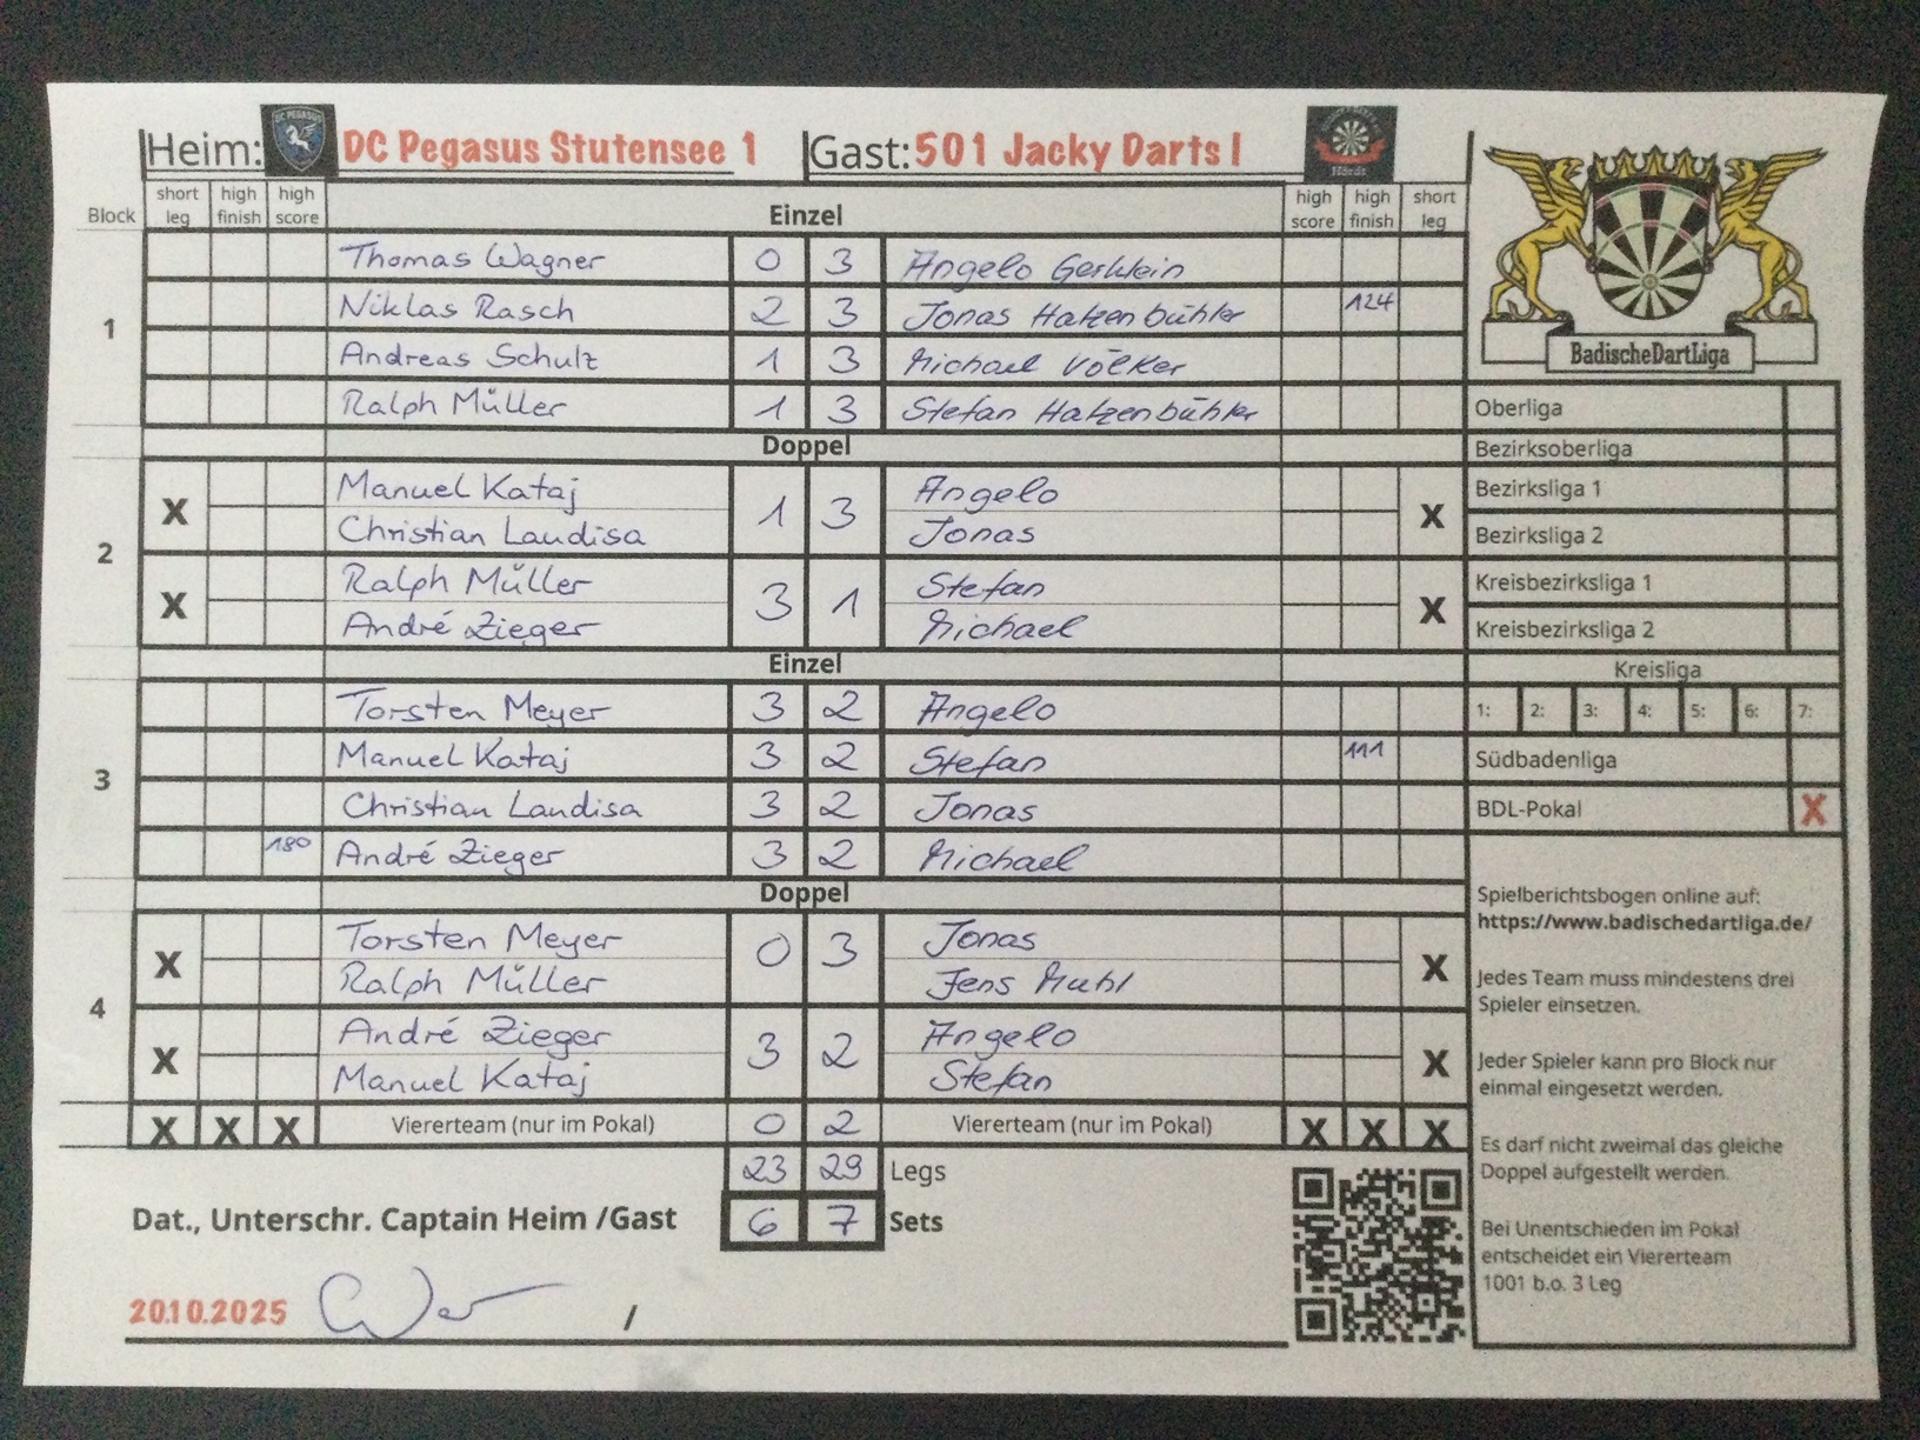 Heim: DC PEGASUS DC Pegasus Stutensee 1 Gast: 501 Jacky Darts I Hördt
Block short leg high finish high score Einzel high score high finish short leg
1
Thomas Wagner 0 3 Angelo Gerklein
Niklas Rasch 2 3 Jonas Hatzenbühler 124
Andreas Schulz 1 3 Michael Völker
Ralph Müller 1 3 Stefan Hatzenbühler
Doppel
2
X Manuel Kataj 1 3 Angelo X
Christian Laudisa Jonas
X Ralph Müller 3 1 Stefan X
André Zieger Michael
Einzel
3
Torsten Meyer 3 2 Angelo
Manuel Kataj 3 2 Stefan 111
Christian Laudisa 3 2 Jonas
180 André Zieger 3 2 Michael
Doppel
4
X Torsten Meyer 0 3 Jonas X
Ralph Müller Jens Muhl
X André Zieger 3 2 Angelo X
Manuel Kataj Stefan
X X X Viererteam (nur im Pokal) 0 2 Viererteam (nur im Pokal) X X X
23 29 Legs
Dat., Unterschr. Captain Heim /Gast 6 7 Sets
20.10.2025 /
BadischeDartLiga
Oberliga
Bezirksoberliga
Bezirksliga 1
Bezirksliga 2
Kreisbezirksliga 1
Kreisbezirksliga 2
Kreisliga
1: 2: 3: 4: 5: 6: 7:
Südbadenliga
BDL-Pokal X
Spielberichtsbogen online auf:
https://www.badischedartliga.de/
Jedes Team muss mindestens drei
Spieler einsetzen.
Jeder Spieler kann pro Block nur
einmal eingesetzt werden.
Es darf nicht zweimal das gleiche
Doppel aufgestellt werden.
Bei Unentschieden im Pokal
entscheidet ein Viererteam
1001 b.o. 3 Leg